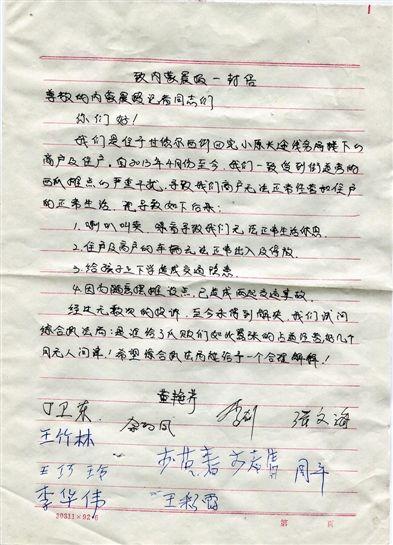 致内蒙晨报一封信
尊敬的内蒙晨报记者同志们
你们好！
我们是住于甘德尔西街四完小原天途线务局楼下的
商户及住户，自2013年4月份至今，我们一致受到街道旁的
西瓜摊点的严重干扰，导致我们商户无法正常经营和住户
的正常生活，既导致如下后果：
1.喇叭叫卖，噪音导致我们无法正常生活休息。
2.住户及商户的车辆无法正常出入及停放。
3.给孩子上下学造成交通隐患。
4.因为随意摆摊设点，已造成两起交通事故。
经过无数次的投诉，至今未得到解决，我们试问
综合执法局：是谁给了瓜贩们如此嚣张的占道经营的几个
月无人问津！希望综合执法局能给予一个合理解释！
黄艳芳
丁卫东 李剑 张文海
王竹林
王巧玲 周平
李华伟 王彩霞
20311×92·6 第 页